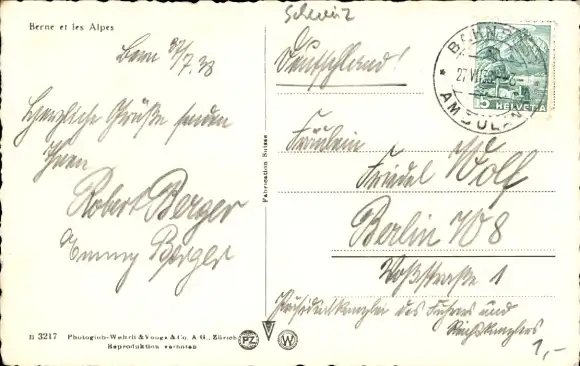 Berne et les Alpes
Schweiz
Bern 27/7.38
Deutschland!
BAHNPOST
27.VII.38
AMBULANT
5 HELVETIA
Herzliche Grüße senden
Ihnen
Robert Berger
Emmy Berger
Fabrication Suisse
Fräulein
Friedel Wolf
Berlin W8
Voßstraße 1
Präsidentkanzlei des Führers und
Reichskanzlers
1,-
B 3217 Photoglob-Wehrli & Vouga & Co. A. G., Zürich
Reproduktion verboten
PZ
W